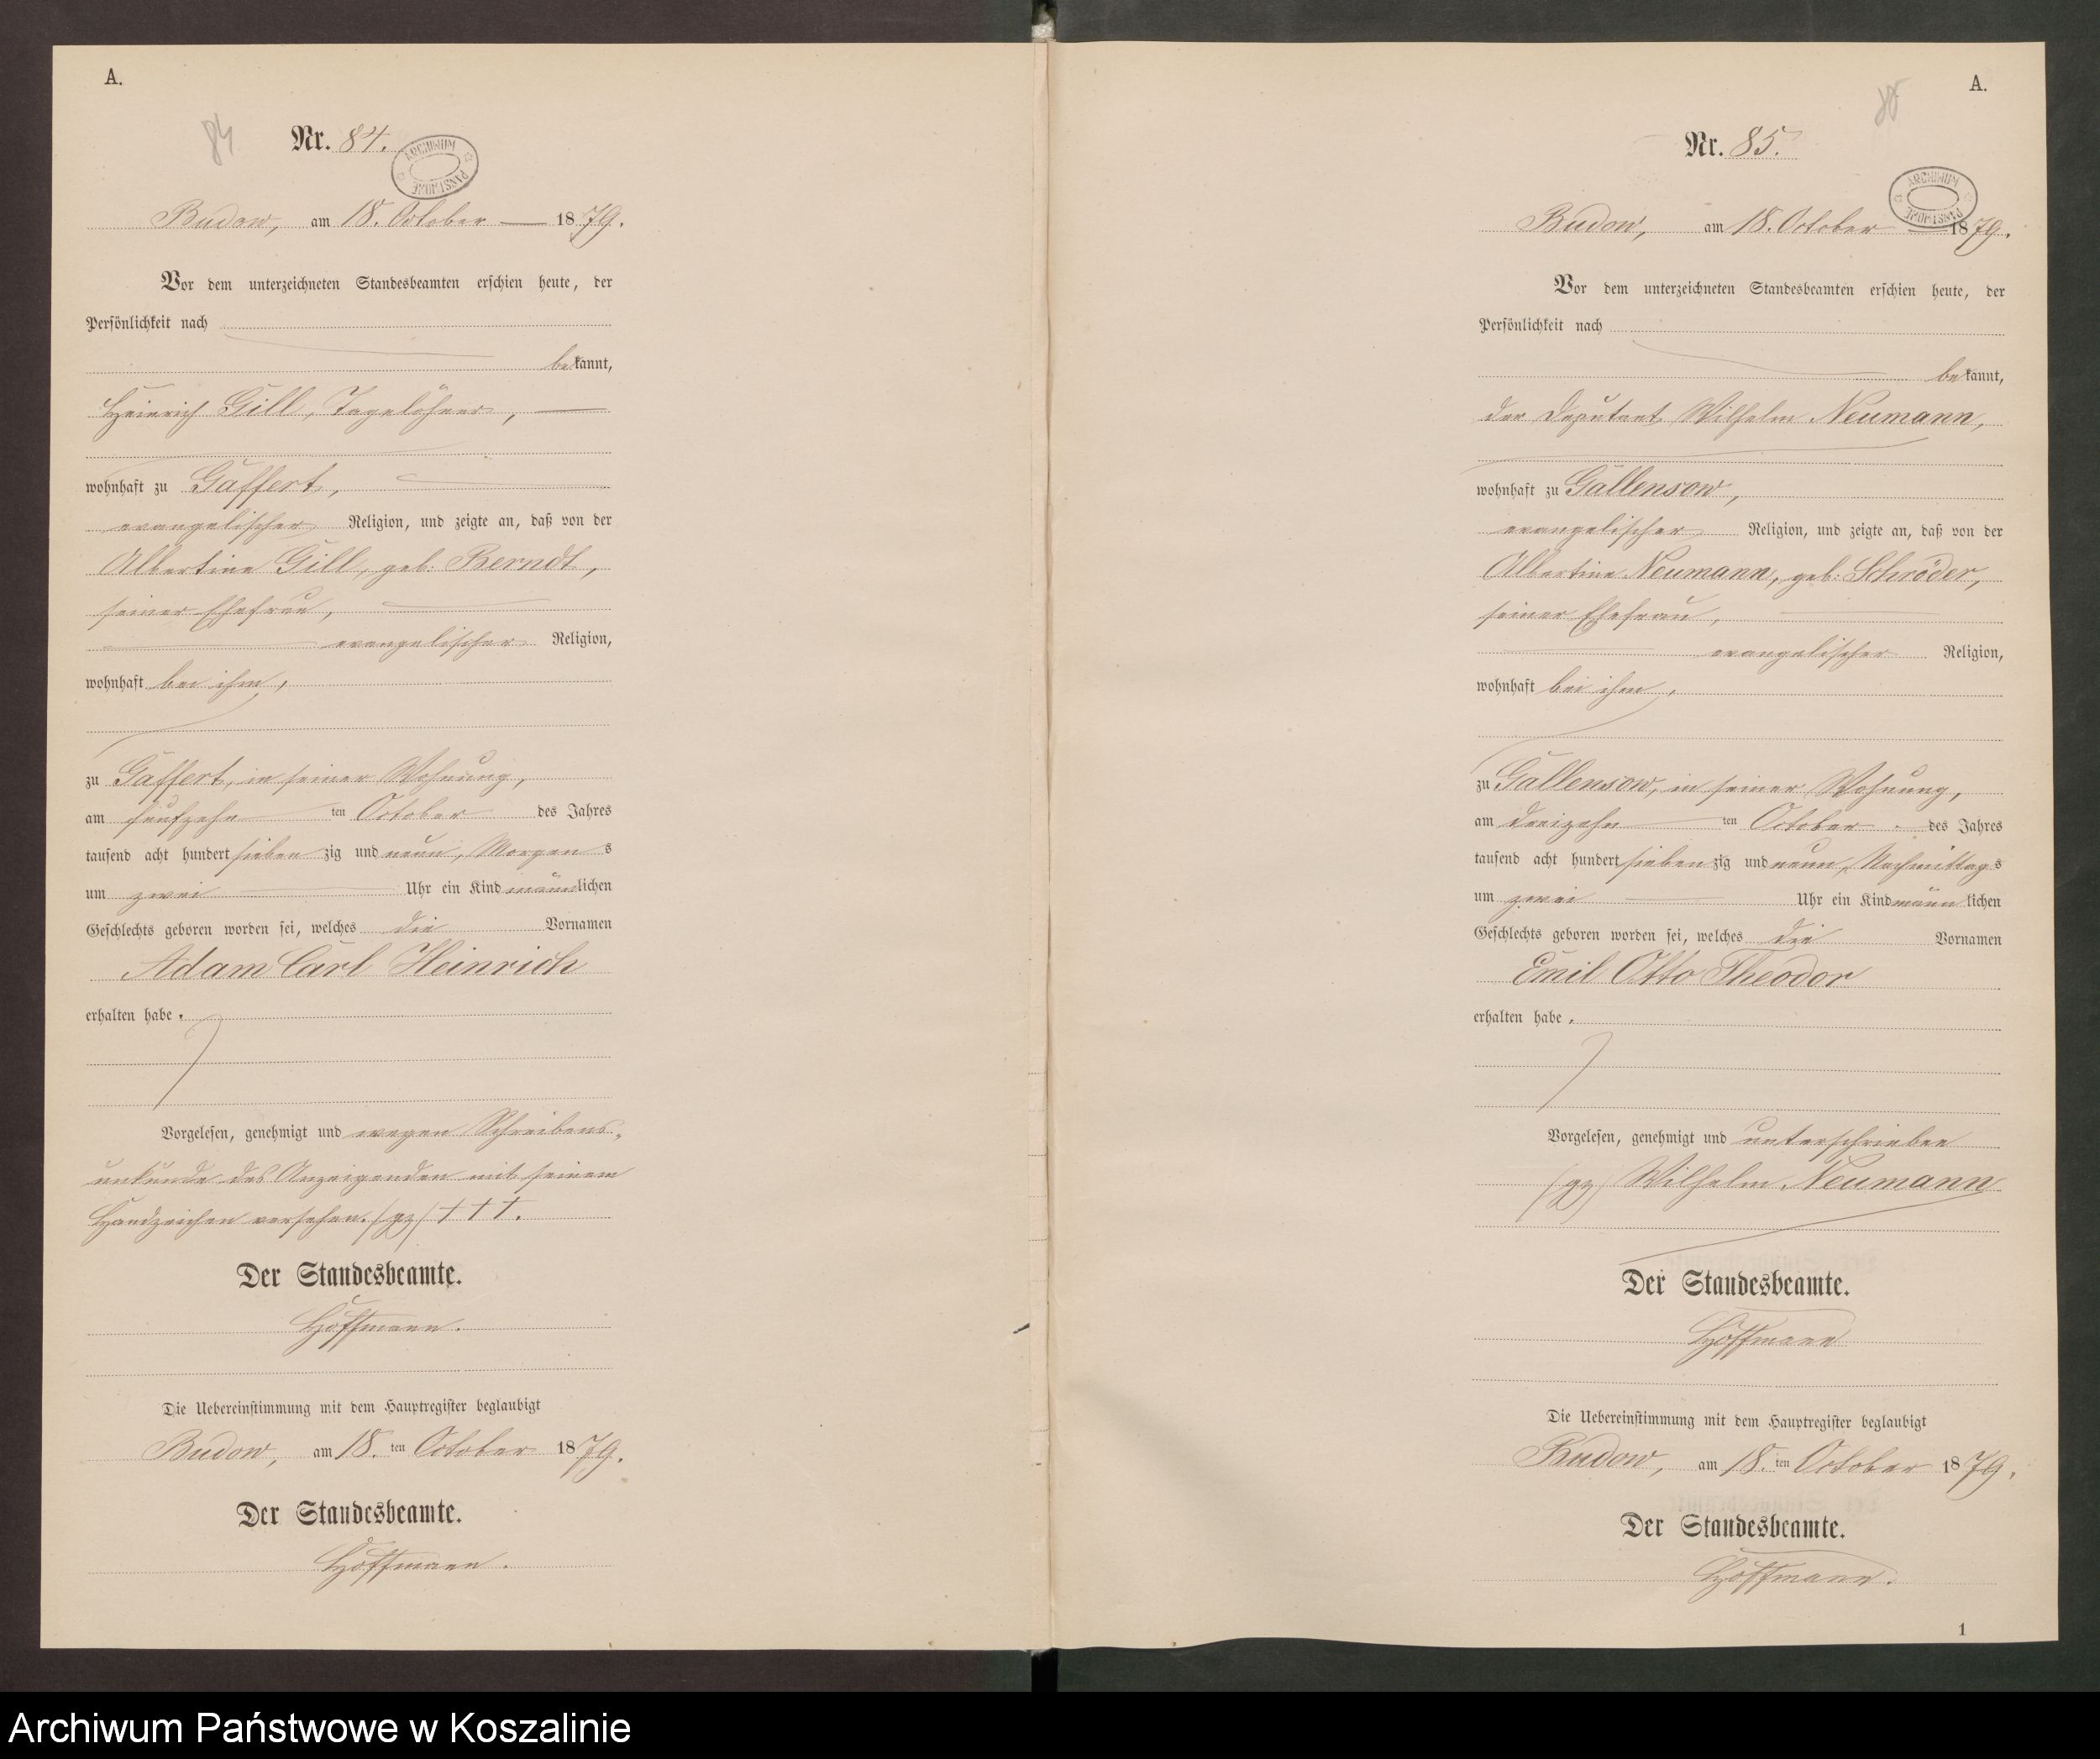 A.
84
Nr. 84.
ARCHIWUM PAŃSTWOWE
Budow, am 18. October 1879.
Vor dem unterzeichneten Standesbeamten erschien heute, der
Persönlichkeit nach
bekannt,
Heinrich Gill, Tagelöhner,
wohnhaft zu Gaffert,
evangelischer Religion, und zeigte an, daß von der
Albertine Gill, geb. Berndt,
seiner Ehefrau,
evangelischer Religion,
wohnhaft bei ihm,
zu Gaffert, in seiner Wohnung,
am fünfzehnten October des Jahres
tausend acht hundert siebenzig und neun, Morgens
um zwei Uhr ein Kind männlichen
Geschlechts geboren worden sei, welches die Vornamen
Adam Carl Heinrich
erhalten habe.
Vorgelesen, genehmigt und wegen Schreibens-
unkunde des Anzeigenden mit seinem
Handzeichen versehen. (gz) + + +.
Der Standesbeamte.
Hoffmann.
Die Uebereinstimmung mit dem Hauptregister beglaubigt
Budow, am 18. ten October 1879.
Der Standesbeamte.
Hoffmann.
A.
85
Nr. 85.
ARCHIWUM PAŃSTWOWE
Budow, am 18. October 1879.
Vor dem unterzeichneten Standesbeamten erschien heute, der
Persönlichkeit nach
bekannt,
der Deputant Wilhelm Neumann,
wohnhaft zu Gallensow,
evangelischer Religion, und zeigte an, daß von der
Albertine Neumann, geb: Schröder,
seiner Ehefrau,
evangelischer Religion,
wohnhaft bei ihm,
zu Gallensow, in seiner Wohnung,
am dreizehnten October des Jahres
tausend acht hundert siebenzig und neun, Nachmittags
um zwei Uhr ein Kind männlichen
Geschlechts geboren worden sei, welches die Vornamen
Emil Otto Theodor
erhalten habe.
Vorgelesen, genehmigt und unterschrieben
(gz) Wilhelm Neumann
Der Standesbeamte.
Hoffmann
Die Uebereinstimmung mit dem Hauptregister beglaubigt
Budow, am 18. ten October 1879.
Der Standesbeamte.
Hoffmann.
1
Archiwum Państwowe w Koszalinie